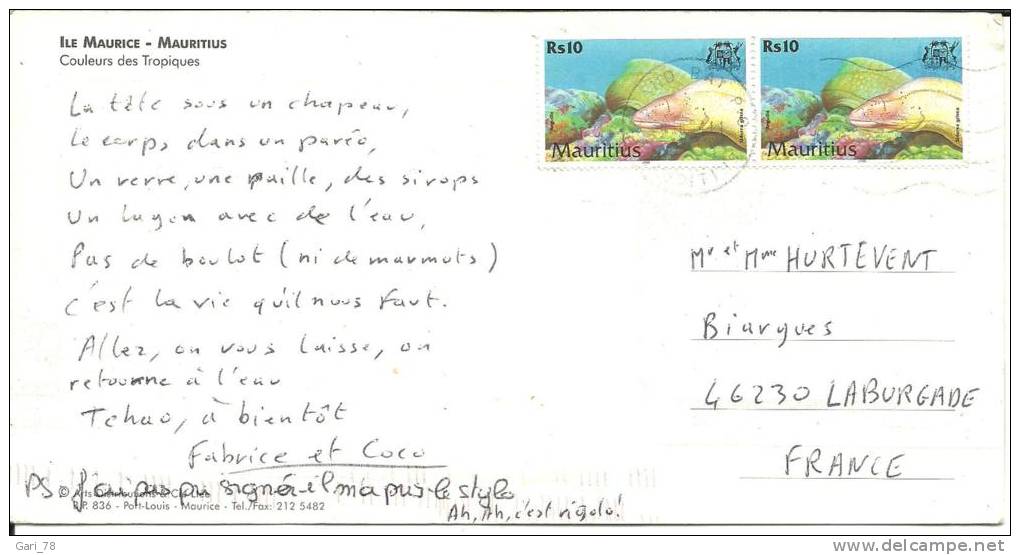 ILE MAURICE - MAURITIUS
Couleurs des Tropiques
La tête sous un chapeau,
Le corps, dans un paréo,
Un verre, une paille, des sirops
Un lagon avec de l'eau,
Pas de boulot (ni de marmots)
C'est la vie qu'il nous faut.
Allez, on vous laisse, on
retourne à l'eau
Tchao, à bientôt
Fabrice et Coco
PS j'ai pas pu signé il m'a pris le stylo
Ah, Ah, c'est rigolo!
© Arts Distributions & Cie Ltée
B.P. 836 - Port-Louis - Maurice - Tel./Fax: 212 5482
Rs10
Mauritius
Rs10
Mauritius
Mr et Mme HURTEVENT
Biargues
46230 LABURGADE
FRANCE
Gari_78
delcampe.net